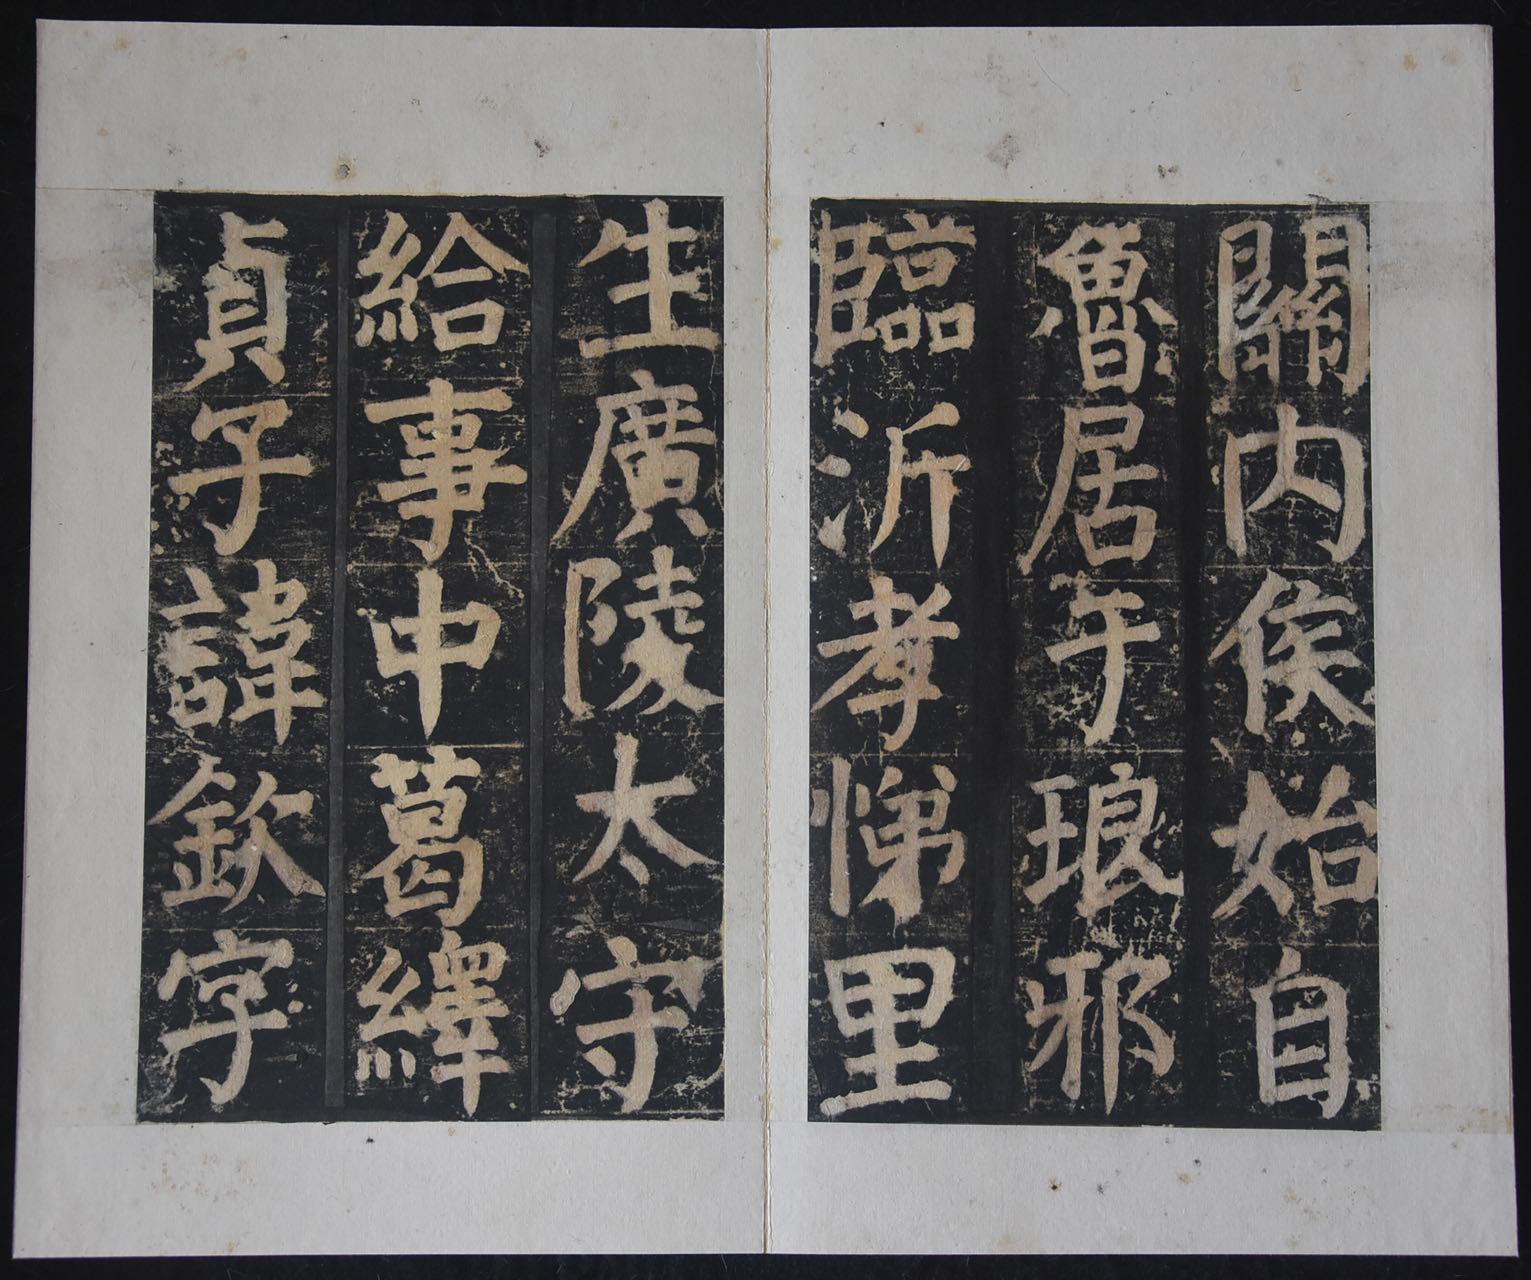 關内侯始自
魯居于琅邪
臨沂孝悌里
生廣陵太守
給事中葛繹
貞子諱欽字